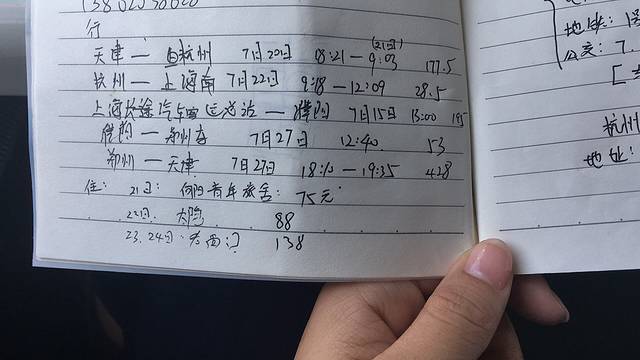 行
天津 — 杭州 7月20日 18:21 — 9:03 (21日) 177.5
杭州 — 上海南 7月22日 9:18 — 12:09 28.5
上海长途汽车 — 濮阳 7月15日 13:00 195
濮阳 — 郑州 7月27日 12:40 53
郑州 — 天津 7月27日 — 19:35 428
住: 21日: 青年旅舍: 75元
22日. 88
23.24日: 老西门 138
地址:
公交: 7.
杭州
地址: